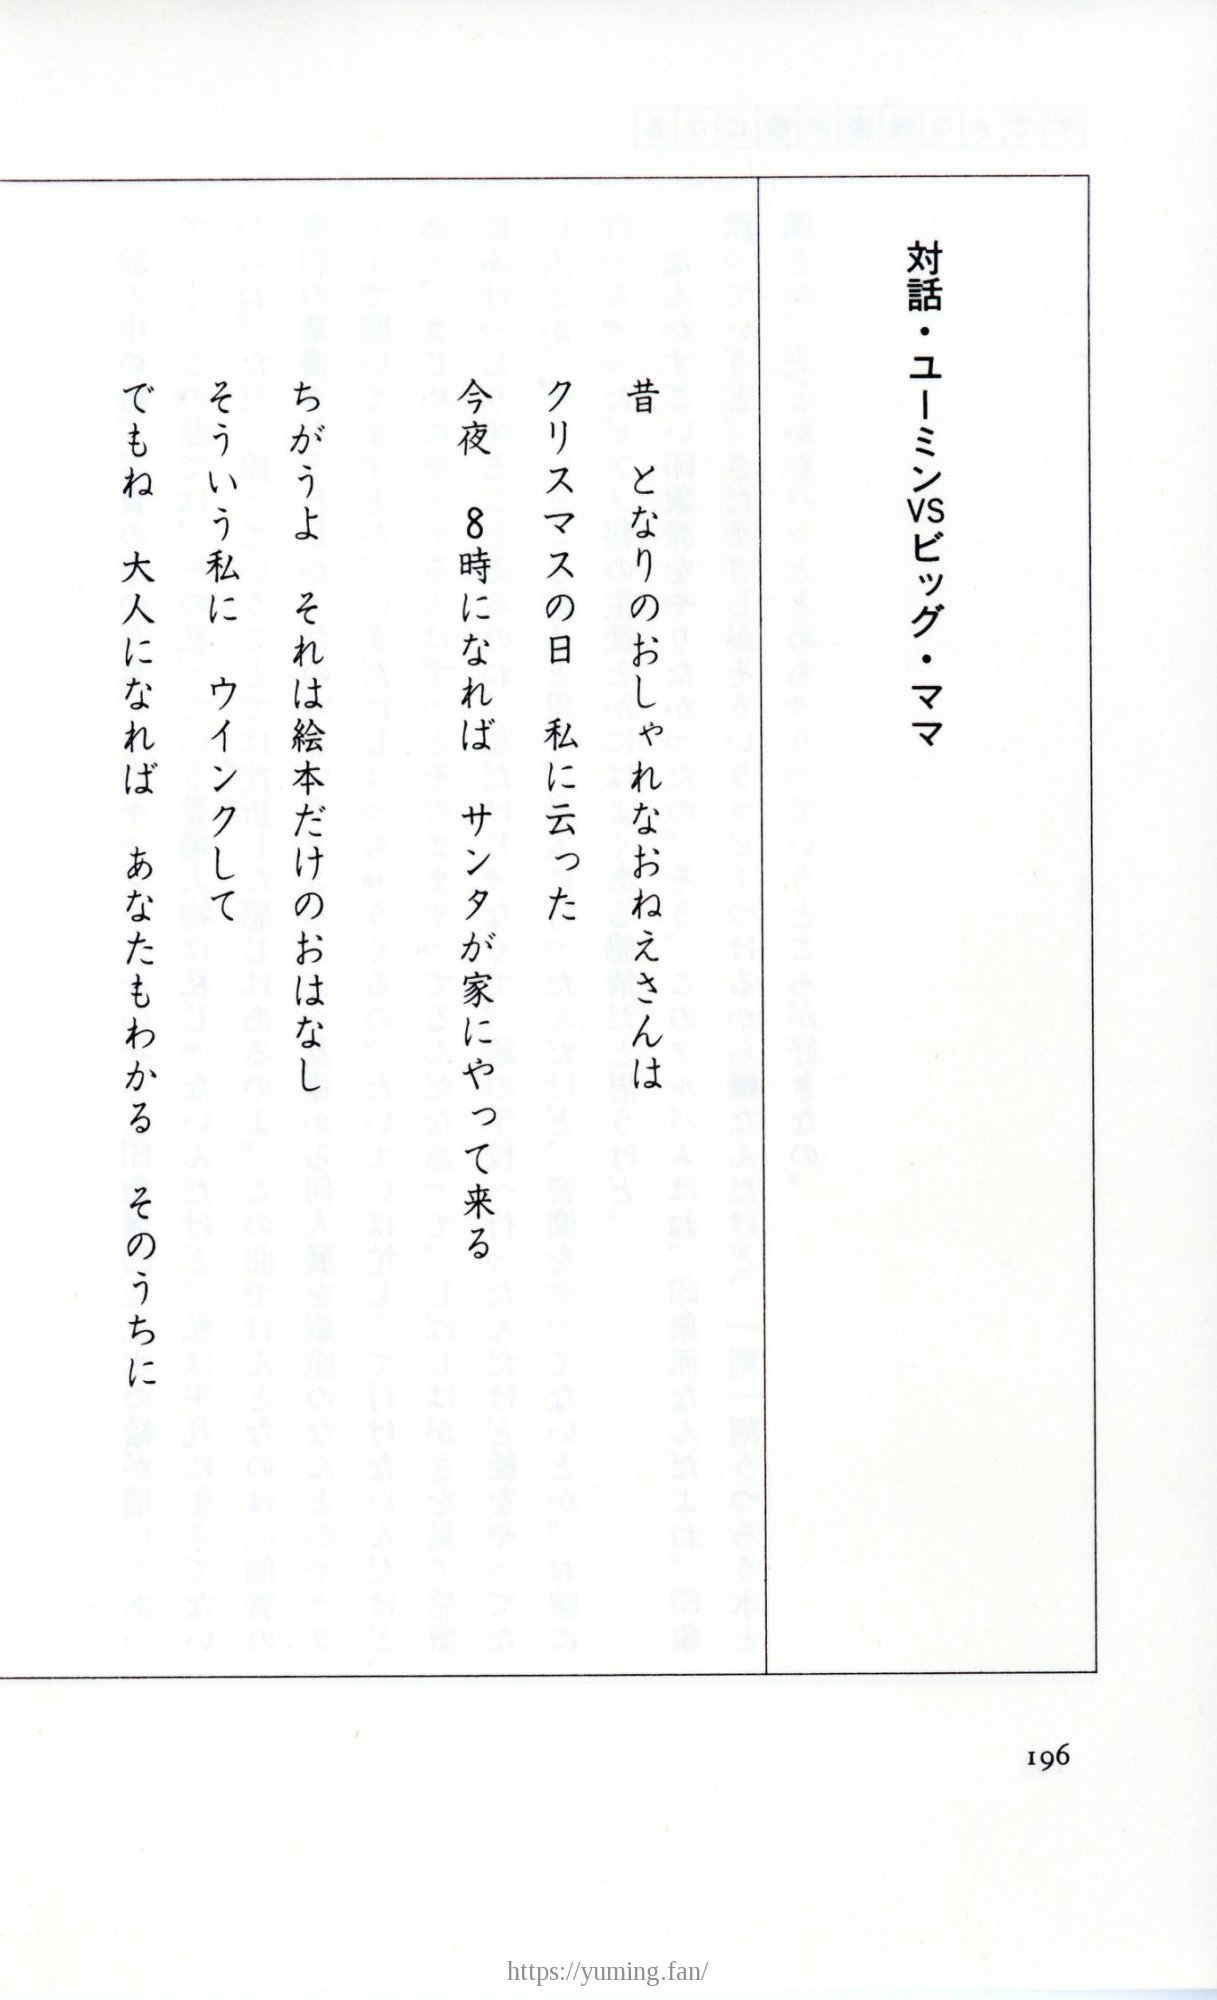 対話・ユーミンVSビッグ・ママ
昔　となりのおしゃれなおねえさんは
クリスマスの日　私に云った
今夜　8時になれば　サンタが家にやって来る
ちがうよ　それは絵本だけのおはなし
そういう私に　ウインクして
でもね　大人になれば　あなたもわかる　そのうちに
196
https://yuming.fan/